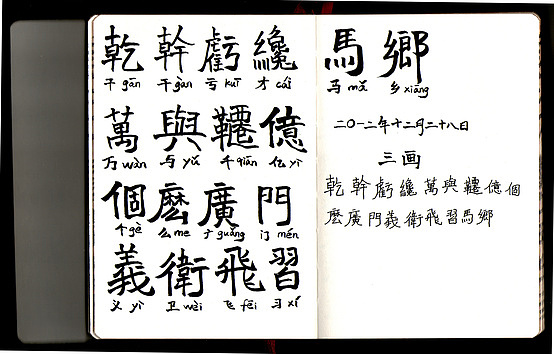 乾 幹 虧 纔
干 gān 干 gàn 亏 kuī 才 cái
萬 與 韆 億
万 wàn 与 yǔ 千 qiān 亿 yì
個 麼 廣 門
个 gè 么 me 广 guǎng 门 mén
義 衛 飛 習
义 yì 卫 wèi 飞 fēi 习 xí
馬 鄉
马 mǎ 乡 xiāng
二〇一二年十二月二十八日
三画
乾幹虧纔萬與韆億個
麼廣門義衛飛習馬鄉